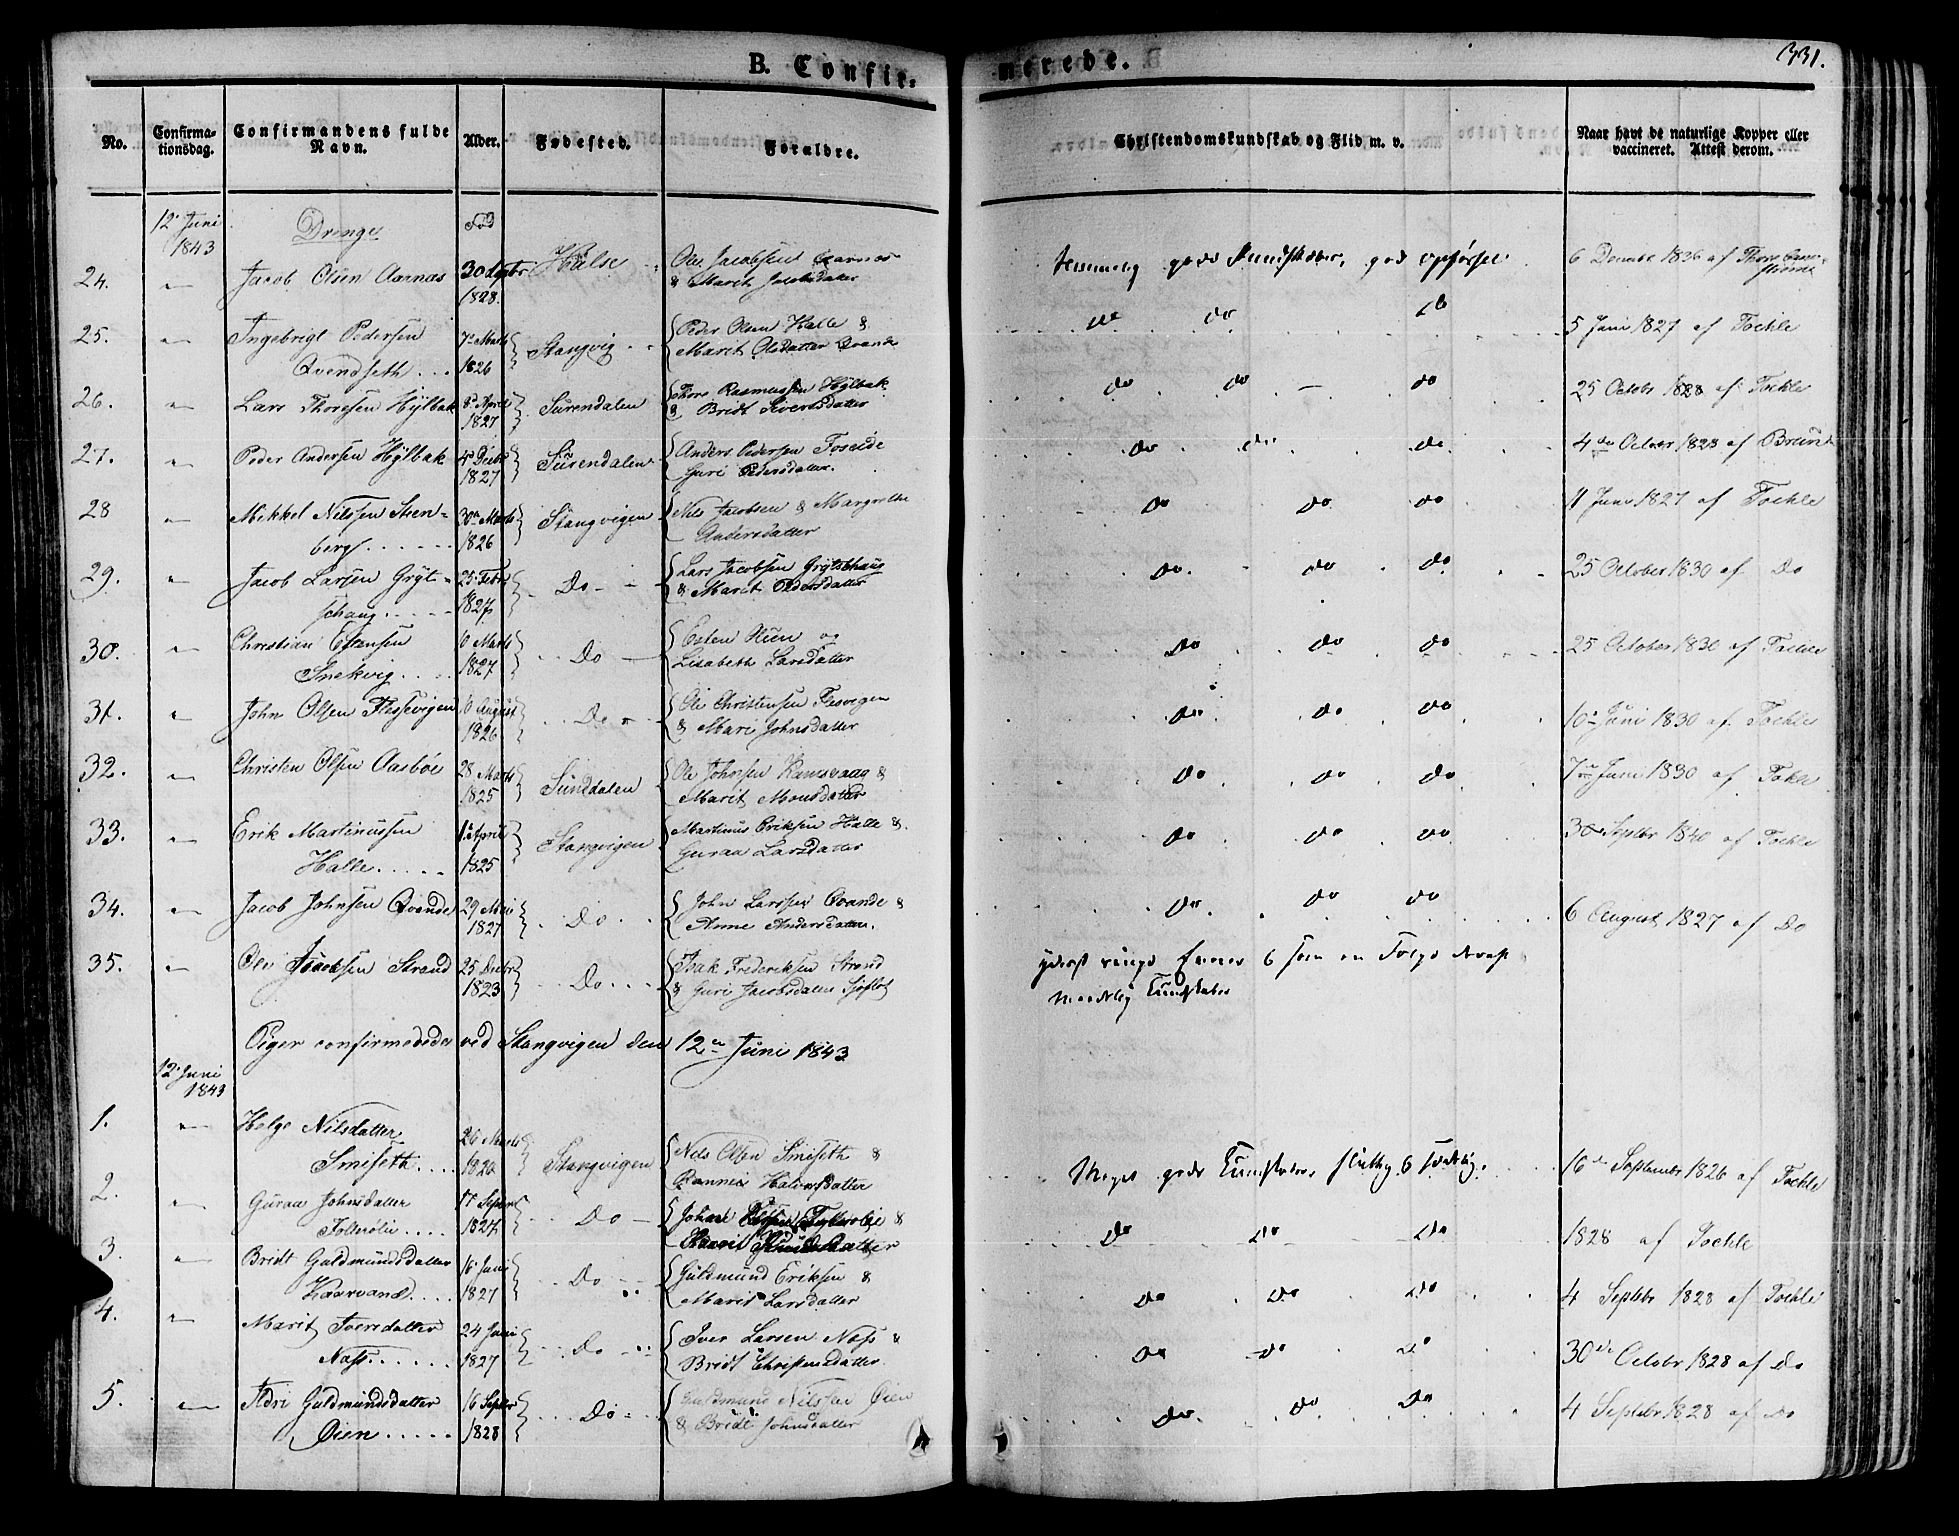 B. Confir-
merede.
331.
No.
Confirma-
tionsdag.
Confirmandens fulde
Navn.
Alder.
Fødested.
Forældre.
Christendomskundskab og Flid m. v.
Naar havt de naturlige Kopper eller
vaccineret. Attest derom.
12. Juni
1843
Drenge
Fød
24. " Jacob Olsen Aarnæs 30 1828. Halse Ole Jacobsen Aarnæs
& Marit Jacobsdatter
Temmelig gode Kundskaber, god opførsel
6 1836 af Thore
25. " Ingebrigt Pedersen
Qvendseth . . 7de Marts
1826 Stangvig Peder Olsen Halle &
Marit Olsdatter Qvande
do do do
5 Juni 1827 af Tochle
26. " Lars Thoresen Hÿlbak 8de April
1827 Surendalen Thore Rasmussen Hÿlbak
& Bridt Sivertsdatter
do do - do
25 Octobr 1828 af Tochle
27. " Peder Andersen Hÿlbak 4de Decbr
1827 Surendalen Anders Pedersen Foseide
Guri Pedersdatter.
do do do
4de Octobr 1828 af Bruun
28 " Mikkel Nilssen Steen-
berg . . . . . . 30te Marts
1826 Stangvigen Nils Jacobsen & Margrethe
Andersdatter
do do do
11 Juni 1827 af Tochle
29. " Jacob Larsen Grÿt-
schaug . . . . 25. Febr
1827 Do Lars Jacobsen Grÿtschaug
& Marit Pedersdatter
do do do
25 October 1830 af Do
30. " Christian Estensen
Snekvig . . . . Marts
1827 Do Esten Olsen og
Lisabeth Larsdatter
do do do
25 October 1830 af Tochle
31. " John Olsen Flessevigen August
1826 Do Ole Christensen Flesvigen
& Mari Johnsdatter
do do do
10 Juni 1830 af Tochle
32. " Christen Olsen Aasbøe 28 Marts
1825 Sunddalen Ole Johnsen Ramsvaag &
Marit Monsdatter
do do do
7de Juni 1830 af Tokle
33. " Erik Martinussen
Halle . . . . . 1. April
1825 Stangvigen Martinus Eriksen Halle &
Guraa Larsdatter
do do do
30 Septbr 1840 af Tochle
34. " Jacob Johnsen Qvande 29 Mai
1827 Do John Larssen Qvande &
Anne Andersdatter.
do do do
6 August 1827 af Do
35. " Ole Isacksen Strand 25 Decbr
1823 Do Isak Frederiksen Strand
& Guri Jacobsdatter Sjøflot
yderst ringe Evner & som en Følge deraf
maadelig Kundskaber
Piger confirmerede ved Stangvigen den 12te Juni 1843
12. Juni
1843
1. " Helge Nilsdatter
Smiseth . . . . 26 Marts
Stangvigen Nils Olsen Smiseth &
Rannei Halvorsdatter
Meget gode Kundskaber, flittig & sædelig.
16de September 1826 af Tochle
2. " Guraa Johnsdatter
17 Septbr
1827 Do Johan &
do do do
1828 af Tochle
3. " Bridt Guldmundsdatter
Kaarvand . . . . 16 Juni
1827 Do Guldmund Eriksen &
Marit Larsdatter
do do do
4 Septbr 1828 af Tochle
4. " Marit Iversdatter
Næss . . . . . . 24 Juni
1827 Do Iver Larsen Næss &
Bridt Christensdatter
do do do
30de Octobr 1828 af do
5. " Adri Guldmundsdatter
Øien . . . . . 16 Septbr
1828 Do Guldmund Nilssen Øien
& Bridt Johnsdatter
do do do
4 Septebr 1828 af Do